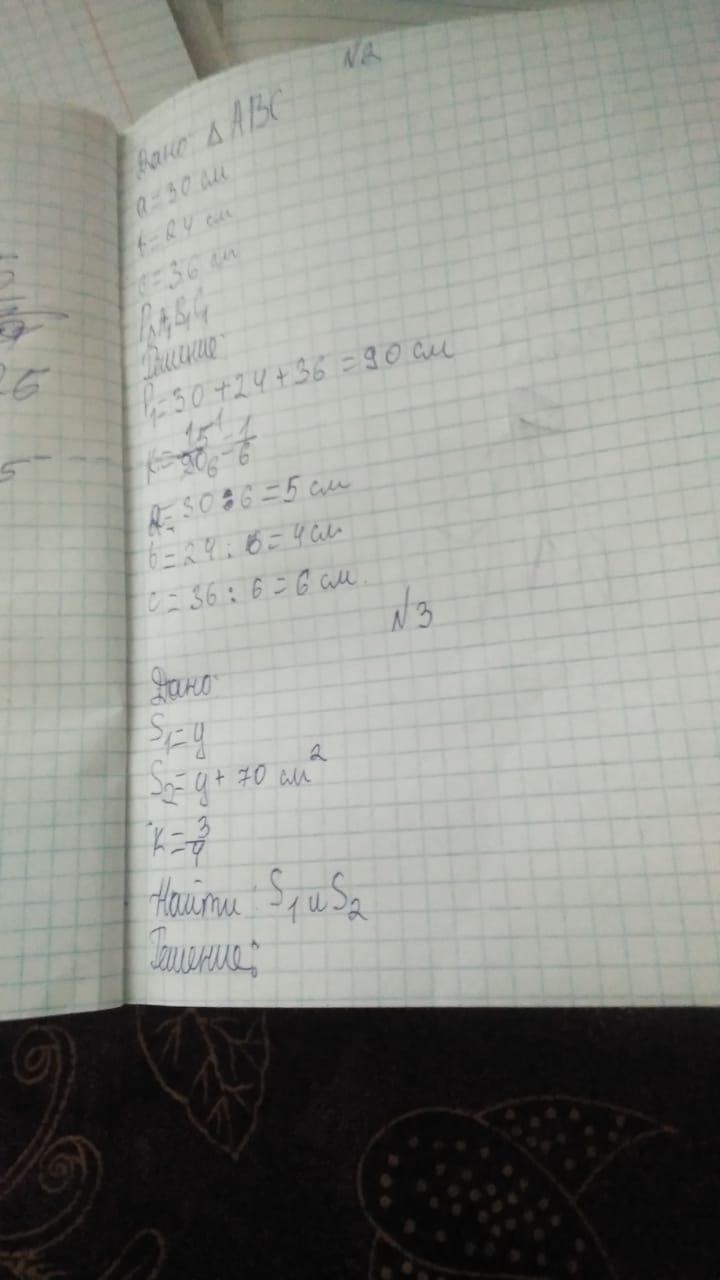 N2
Дано: Δ ABC
a = 30 см
b = 24 см
c = 36 см
PΔA₁B₁C₁
Решение:
P₁ = 30 + 24 + 36 = 90 см
K = 15¹/90₆ = 1/6
a = 30 : 6 = 5 см
b = 24 : 6 = 4 см
c = 36 : 6 = 6 см.
N3
Дано:
S₁ = y
S₂ = y + 70 см²
K = 3/4
Найти: S₁ и S₂
Решение: